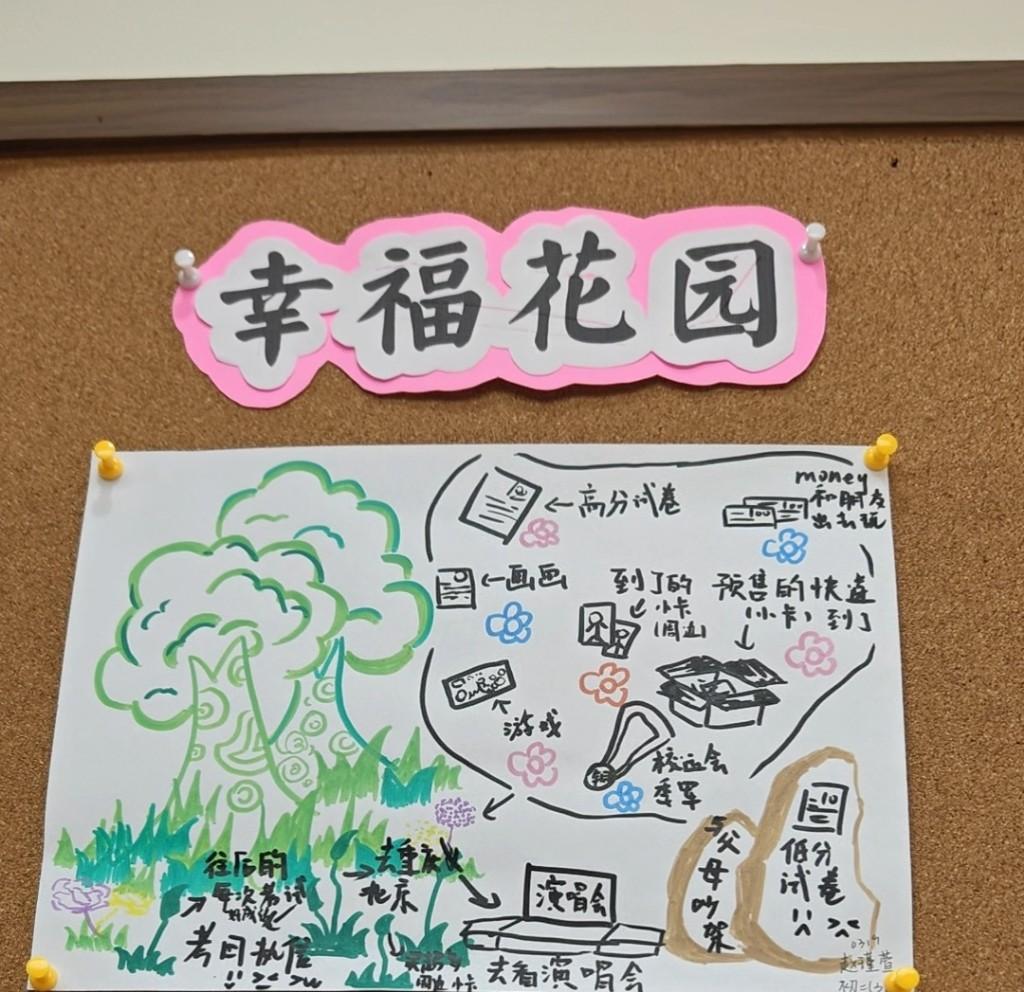 幸福花园
←高分试卷
money
和朋友
出去玩
←画画
到了的
小卡
(周边)
预售的快递
(小卡)到了
游戏
校运会
季军
往后的
每次考试
好成绩
考回执信
→去重庆
北京
周边
小卡
演唱会
去看演唱会
与父母吵架
低分
试卷
0317
赵瑾萱
初二13